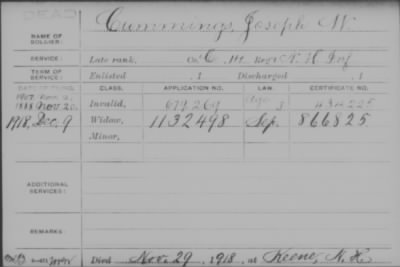 DEAD
NAME OF SOLDIER: Cummings, Joseph W.
SERVICE: Late rank, Co. C, Reg't N. H. Inf
TERM OF SERVICE: Enlisted , 1 Discharged , 1
DATE OF FILING. CLASS. APPLICATION NO. LAW. CERTIFICATE NO.
1888 Nov. 20. Invalid,
1918, Dec. 9 Widow, 1132498 Sep. 866825
Minor,
ADDITIONAL SERVICES:
REMARKS:
Died Nov. 29, 1918, at Keene, N. H.